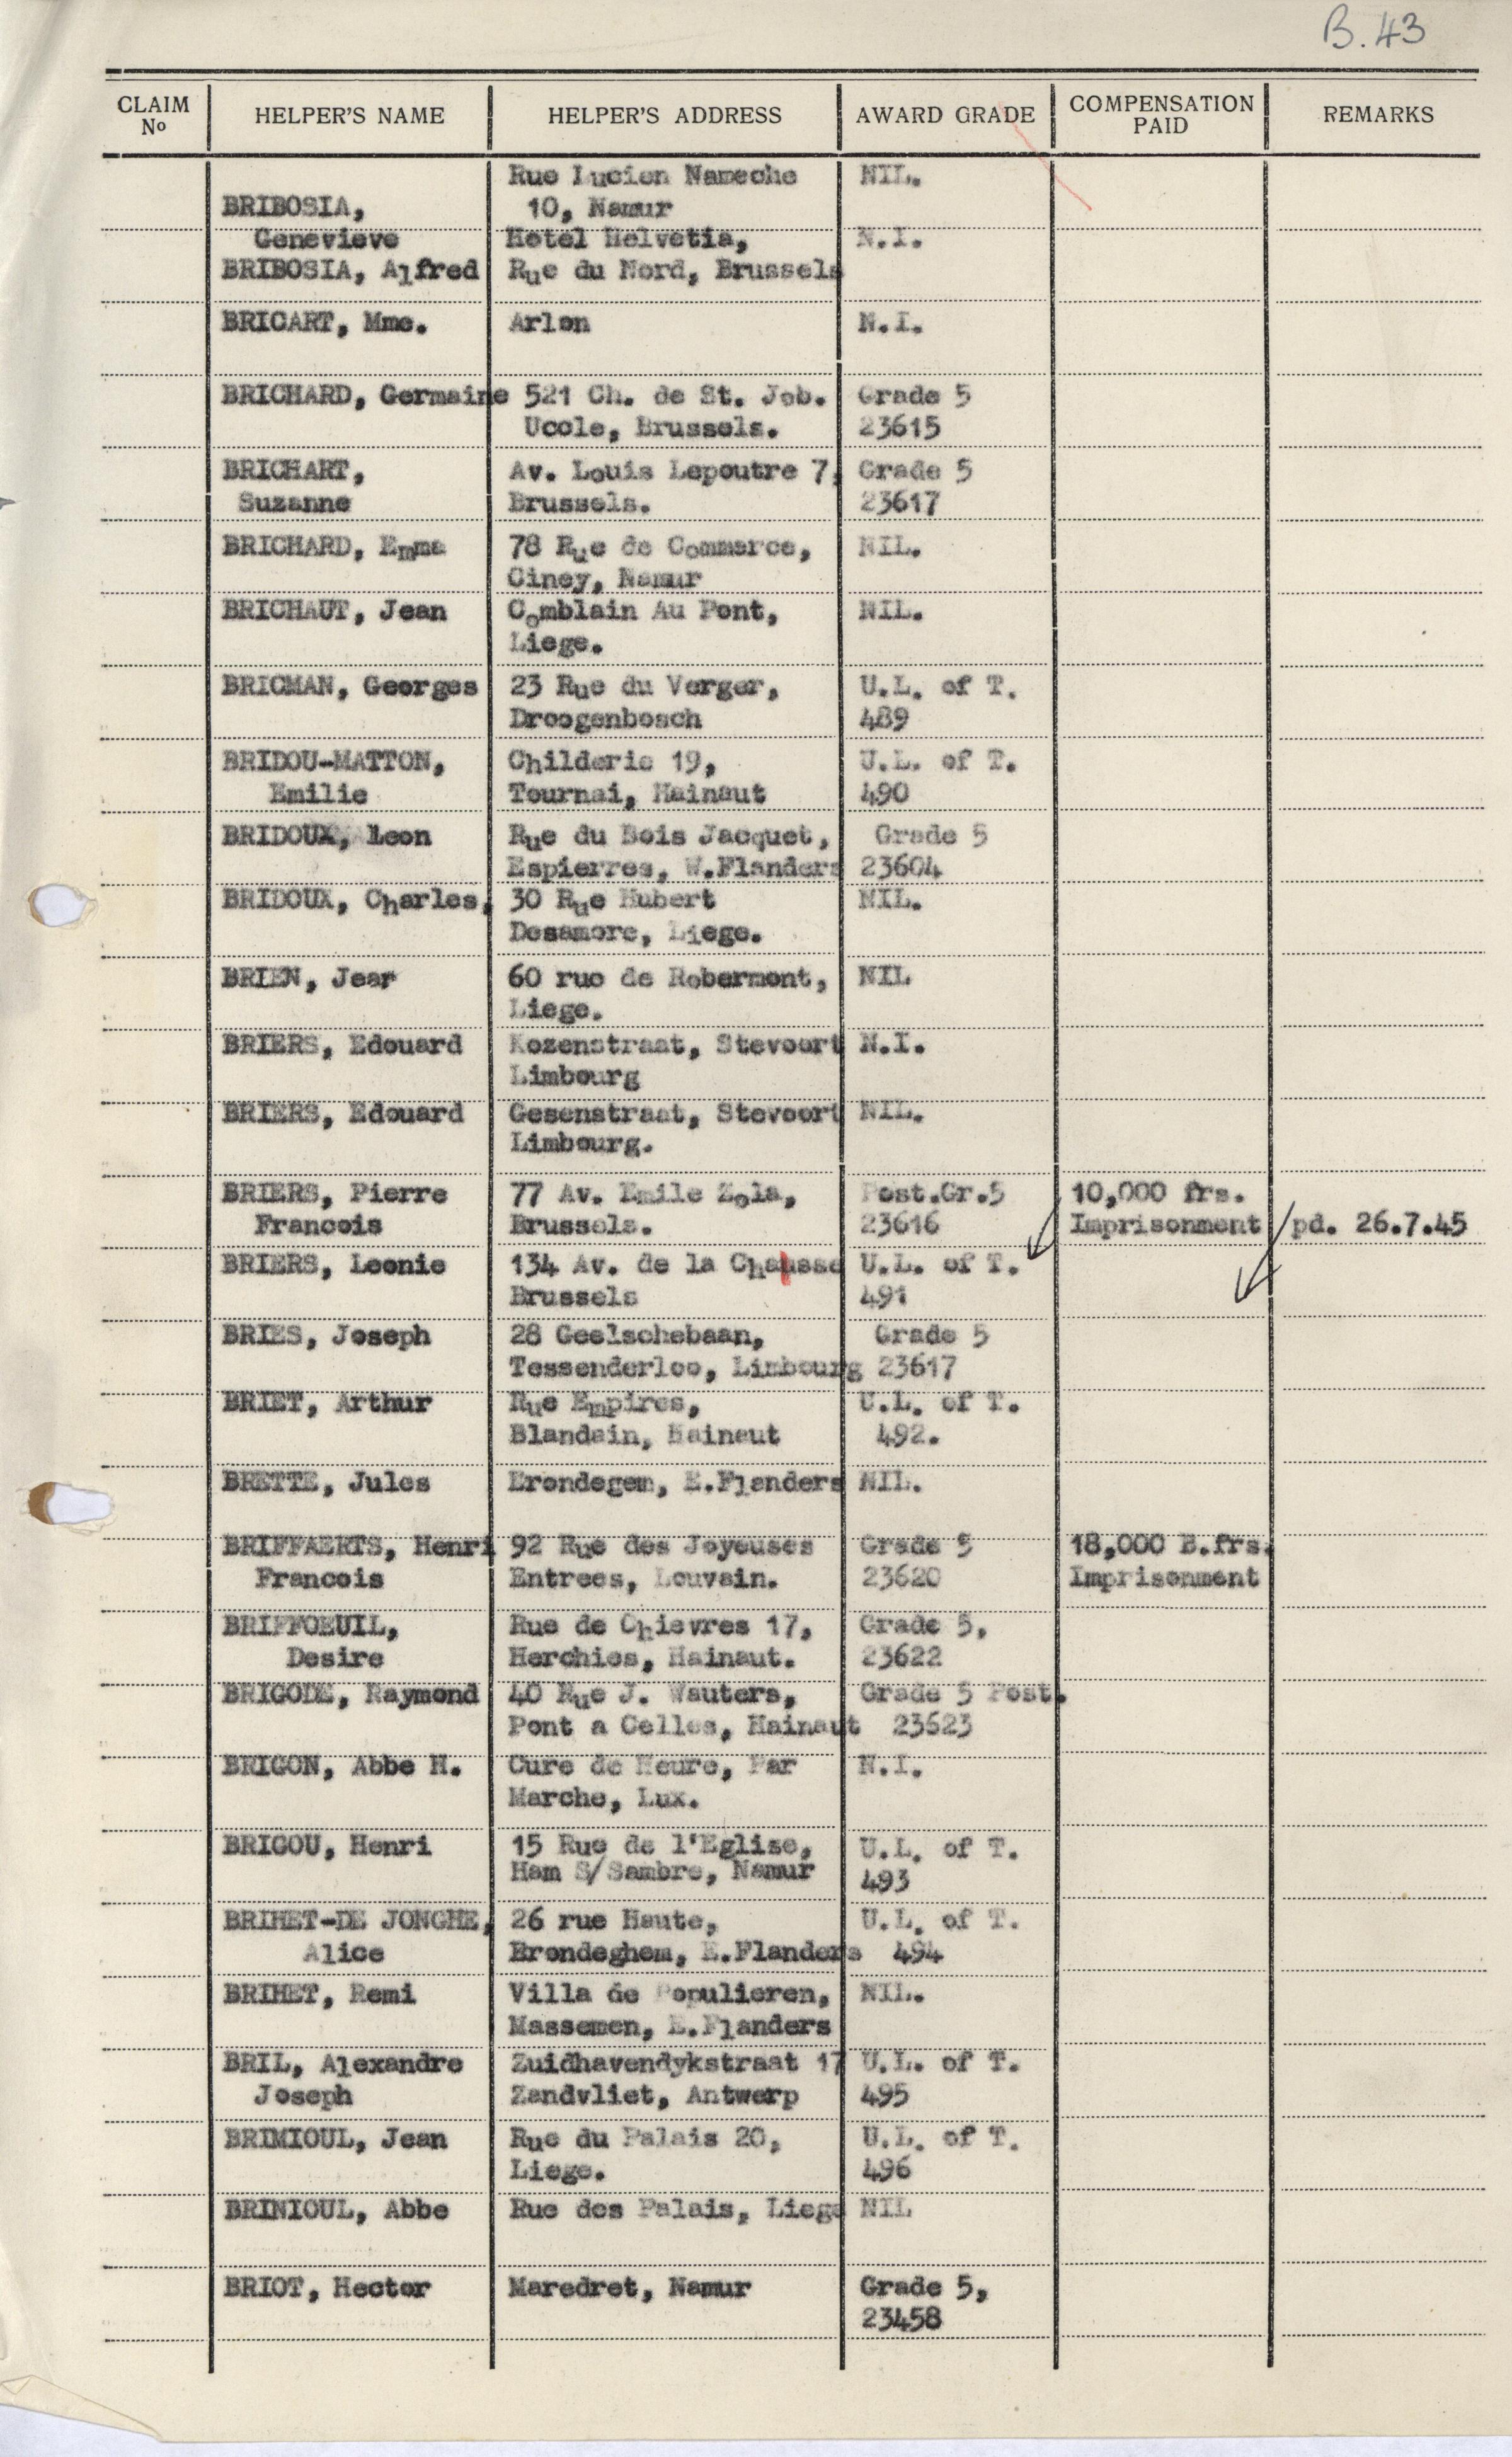 B.43
CLAIM No HELPER'S NAME HELPER'S ADDRESS AWARD GRADE COMPENSATION PAID REMARKS
Rue Lucien Nameche NIL.
BRIBOSIA, 10, Namur
Genevieve Hotel Helvetia, N.I.
BRIBOSIA, Alfred Rue du Nord, Brussels
BRICART, Mme. Arlon N.I.
BRICHARD, Germaine 521 Ch. de St. Job. Grade 5
Uccle, Brussels. 23615
BRICHART, Av. Louis Lepoutre 7, Grade 5
Suzanne Brussels. 23617
BRICHARD, Emma 78 Rue de Commerce, NIL.
Ciney, Namur
BRICHAUT, Jean Comblain Au Pont, NIL.
Liege.
BRICMAN, Georges 23 Rue du Verger, U.L. of T.
Droogenbosch 489
BRIDOU-MATTON, Childeric 19, U.L. of T.
Emilie Tournai, Hainaut 490
BRIDOUX, Leon Rue du Bois Jacquet, Grade 5
Espierres, W.Flanders 23604
BRIDOUX, Charles, 30 Rue Hubert NIL.
Desamore, Liege.
BRIEN, Jear 60 rue de Robermont, NIL
Liege.
BRIERS, Edouard Kozenstraat, Stevoort N.I.
Limbourg
BRIERS, Edouard Gesenstraat, Stevoort NIL.
Limbourg.
BRIERS, Pierre 77 Av. Emile Zola, Post.Gr.5 10,000 frs.
Francois Brussels. 23616 Imprisonment pd. 26.7.45
BRIERS, Leonie 134 Av. de la Chausse U.L. of T.
Brussels 491
BRIES, Joseph 28 Geelschebaan, Grade 5
Tessenderloo, Limbourg 23617
BRIET, Arthur Rue Empires, U.L. of T.
Blandain, Hainaut 492.
BRETTE, Jules Erondegem, E.Flanders NIL.
BRIFFAERTS, Henri 92 Rue des Joyeuses Grade 5 18,000 B.frs.
Francois Entrees, Louvain. 23620 Imprisonment
BRIFFOEUIL, Rue de Chievres 17, Grade 5,
Desire Herchies, Hainaut. 23622
BRIGODE, Raymond 40 Rue J. Wauters, Grade 5 Post.
Pont a Celles, Hainaut 23623
BRIGON, Abbe H. Cure de Heure, Par N.I.
Marche, Lux.
BRIGOU, Henri 15 Rue de l'Eglise, U.L. of T.
Ham S/Sambre, Namur 493
BRIHET-DE JONGHE, 26 rue Haute, U.L. of T.
Alice Erondeghem, E.Flanders 494
BRIHET, Remi Villa de Populieren, NIL.
Massemen, E.Flanders
BRIL, Alexandre Zuidhavendykstraat 17 U.L. of T.
Joseph Zandvliet, Antwerp 495
BRIMIOUL, Jean Rue du Palais 20, U.L. of T.
Liege. 496
BRINIOUL, Abbe Rue des Palais, Liege NIL
BRIOT, Hector Maredret, Namur Grade 5,
23458